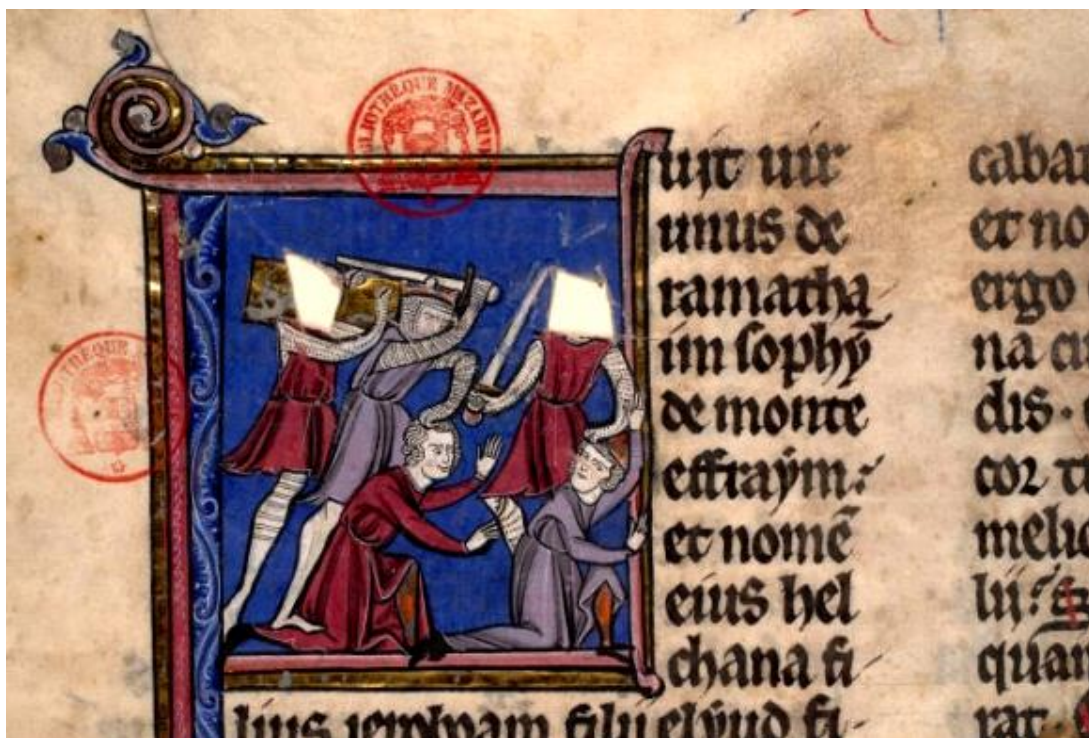 BIBLIOTHEQUE MAZARINE
uit uir
unus de
ramatha
im sophȳ
de monte
effraym:
et nomē
eius hel
chana fi
lius ieroboam filii elyud fi
caba
et no
ergo
na cu
dis.
cor
melio
lii:
quan
rat.